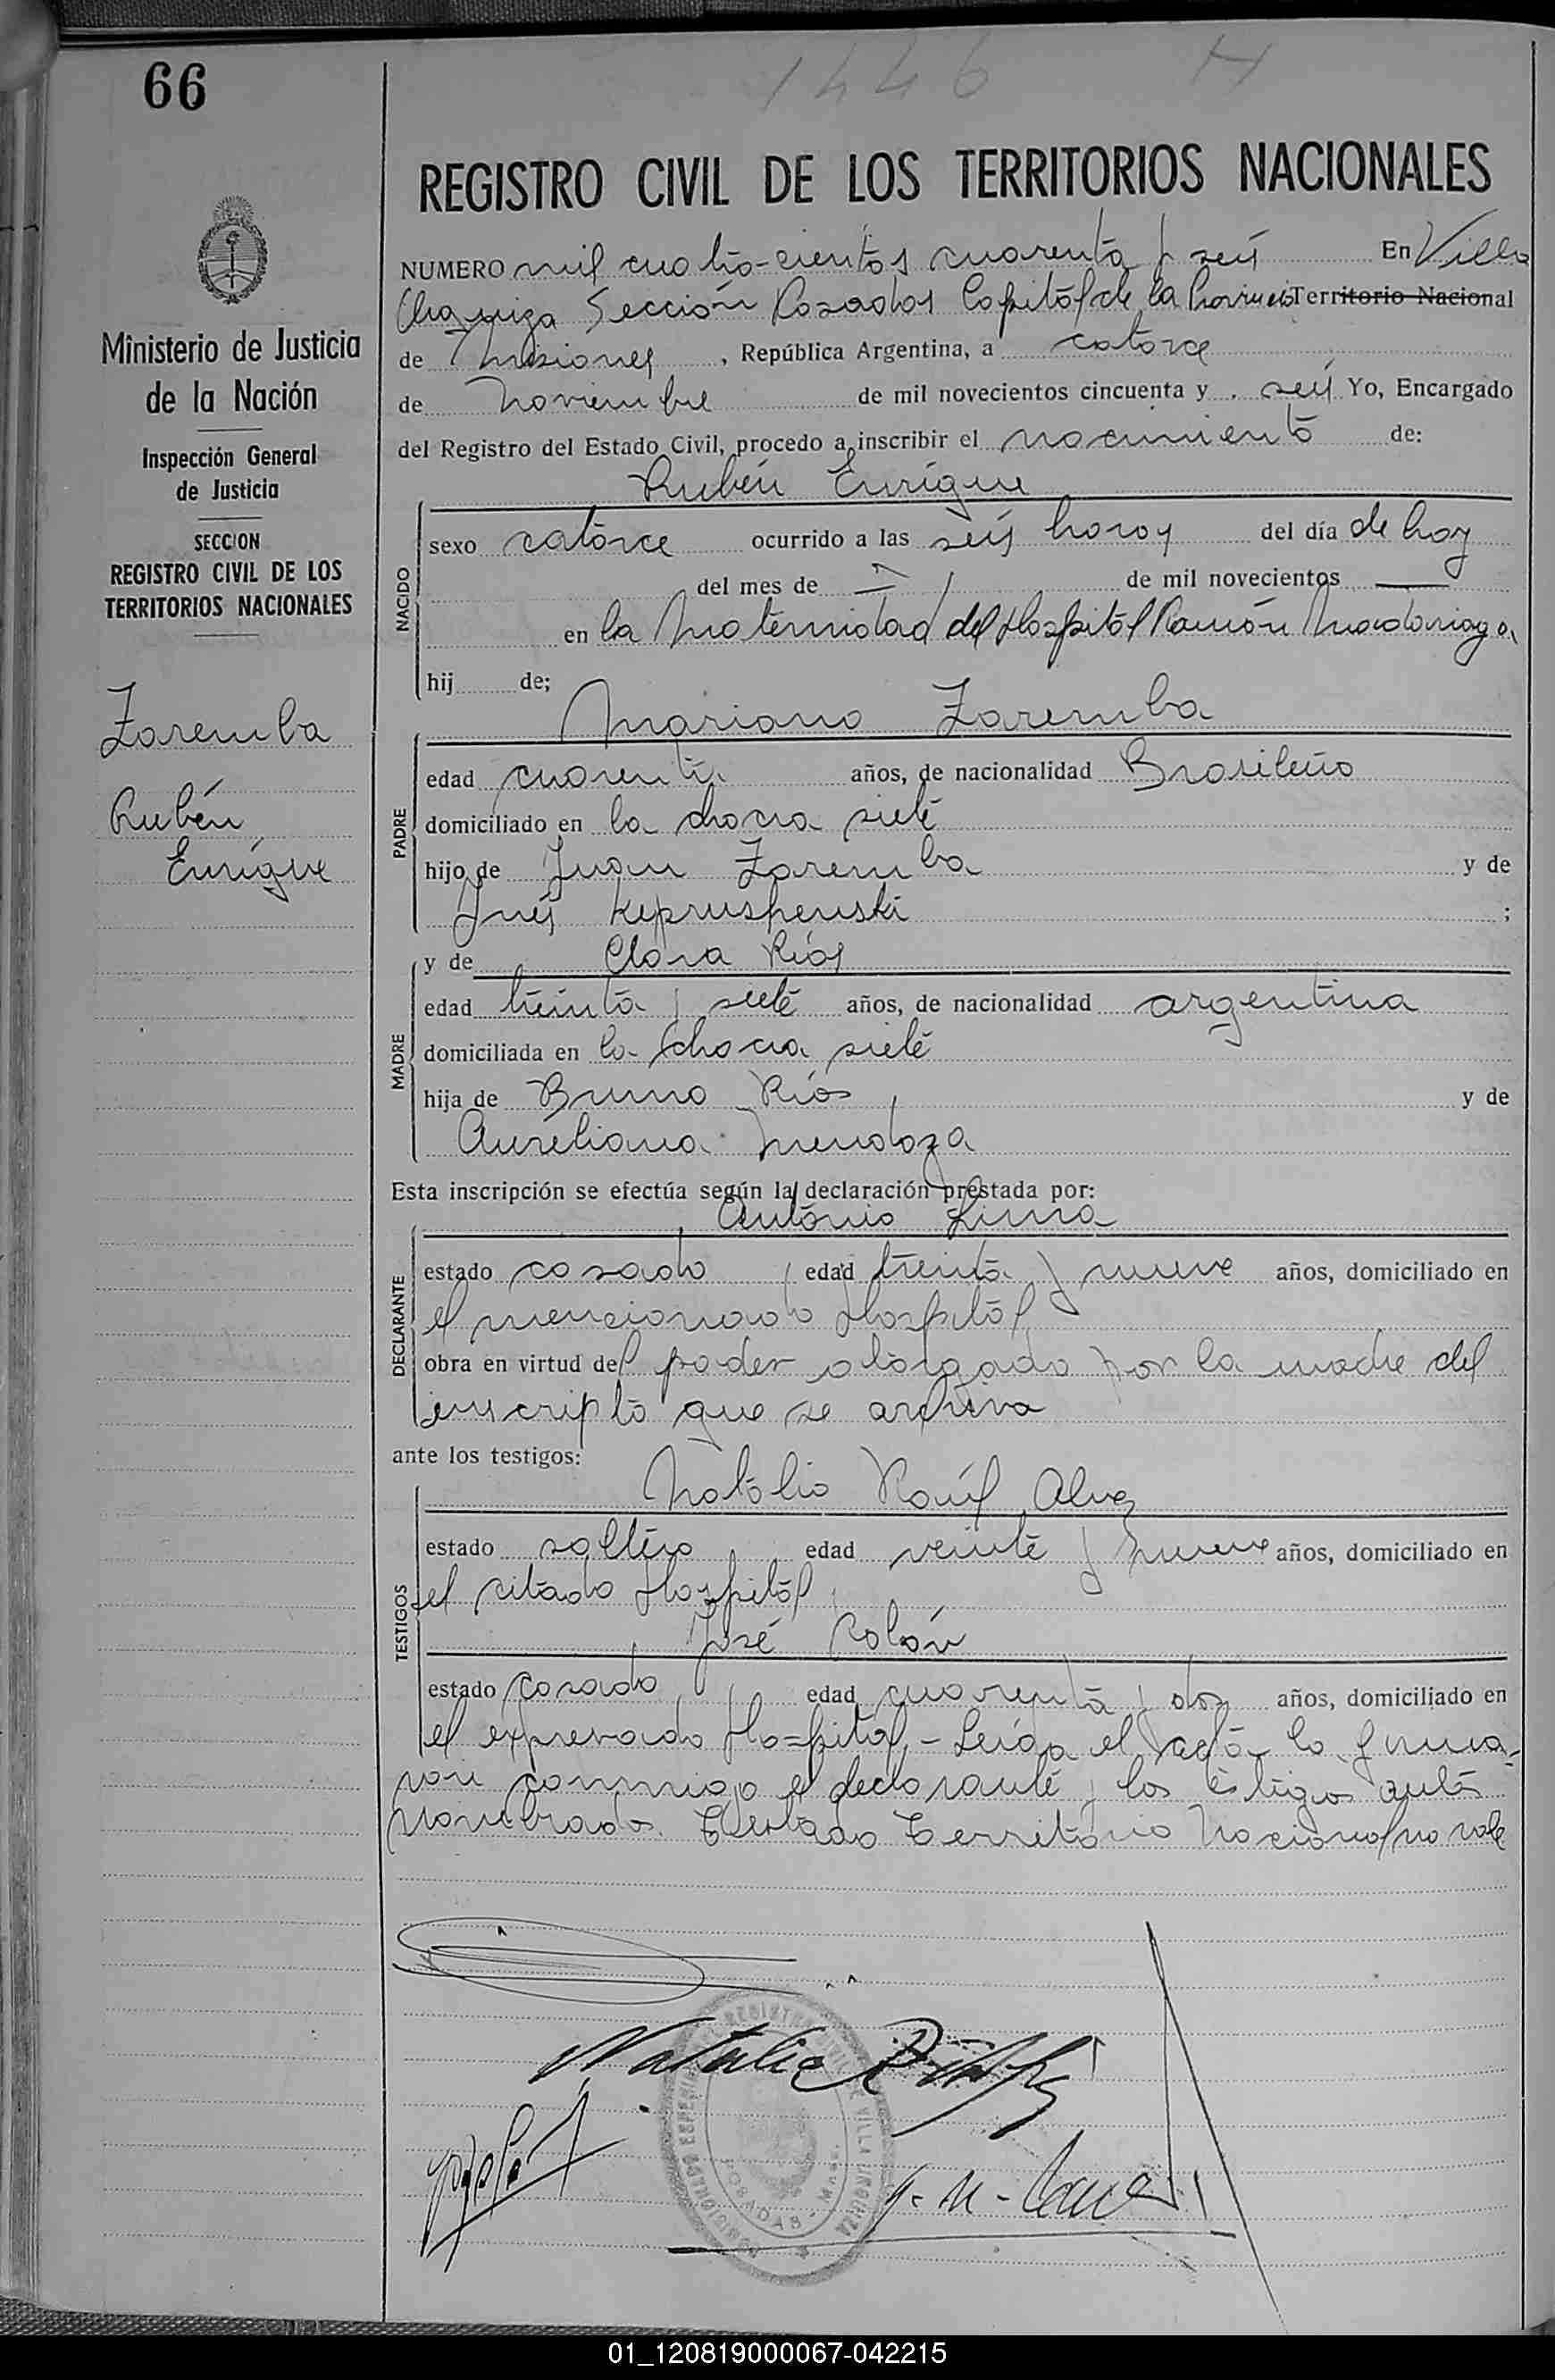 66
1446
REGISTRO CIVIL DE LOS TERRITORIOS NACIONALES
NUMERO mil cuatro-cientos cuarenta y seis En Villa
Urquiza Sección Posadas Capital de la Provincia Territorio Nacional
de Misiones, República Argentina, a catorce
de Noviembre de mil novecientos cincuenta y seis Yo, Encargado
del Registro del Estado Civil, procedo a inscribir el nacimiento de:
Rubén Enrique
NACIDO
sexo catorce ocurrido a las seis horas del día de hoy
del mes de de mil novecientos
en la Maternidad del Hospital Ramón Madariaga,
hij de;
Mariano Zaremba
PADRE
edad cuarenta años, de nacionalidad Brasileño
domiciliado en la chacra siete
hijo de Juan Zaremba y de
Inés Keprushenski ;
y de Clara Ríos
MADRE
edad treinta y siete años, de nacionalidad argentina
domiciliada en la chacra siete
hija de Bruno Ríos y de
Aureliana Mendoza
Esta inscripción se efectúa según la declaración prestada por:
Antonio Lima
DECLARANTE
estado casado edad treinta y nueve años, domiciliado en
el mencionado Hospital
obra en virtud del poder otorgado por la madre del
inscripto que se archiva
ante los testigos:
Natalio Raúl Alvez
TESTIGOS
estado soltero edad veinte y nueve años, domiciliado en
el citado Hospital
José Colón
estado casado edad cuarenta y dos años, domiciliado en
el expresado Hospital,- Leída el acta, la firma-
ron conmigo el declarante y los testigos antes
nombrados. Testado Territorio Nacional no vale
Ministerio de Justicia
de la Nación
Inspección General
de Justicia
SECCION
REGISTRO CIVIL DE LOS
TERRITORIOS NACIONALES
Zaremba
Rubén
Enrique
Natalio R
REGISTRO CIVIL VILLA URQUIZA
POSADAS - Mnes.
01_120819000067-042215